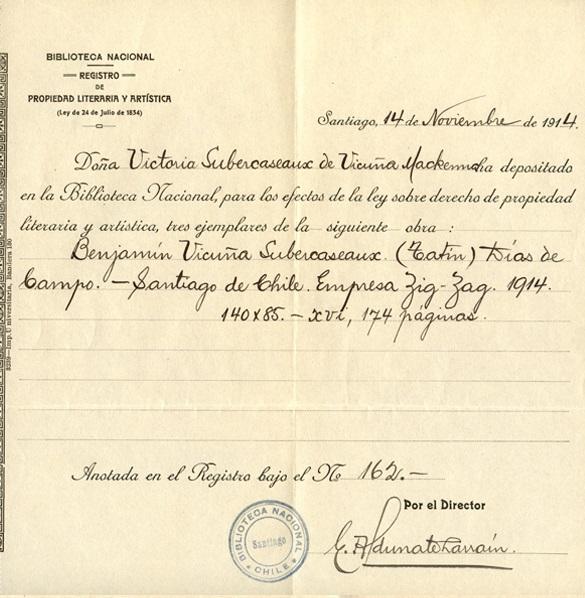 BIBLIOTECA NACIONAL
REGISTRO
DE
PROPIEDAD LITERARIA Y ARTÍSTICA
(Ley de 24 de Julio de 1834)
Santiago, 14 de Noviembre de 1914.
Doña Victoria Subercaseaux de Vicuña Mackenna ha depositado
en la Biblioteca Nacional, para los efectos de la ley sobre derecho de propiedad
literaria y artística, tres ejemplares de la siguiente obra :
Benjamín Vicuña Subercaseaux. (Tatín) Días de
Campo. — Santiago de Chile. Empresa Zig-Zag. 1914.
140 x 85. — xvi, 174 páginas.
Anotada en el Registro bajo el No 162. —
Por el Director
E. Aldunate Larraín.
BIBLIOTECA NACIONAL
Santiago
CHILE
Imp. Universitaria, Bandera 130